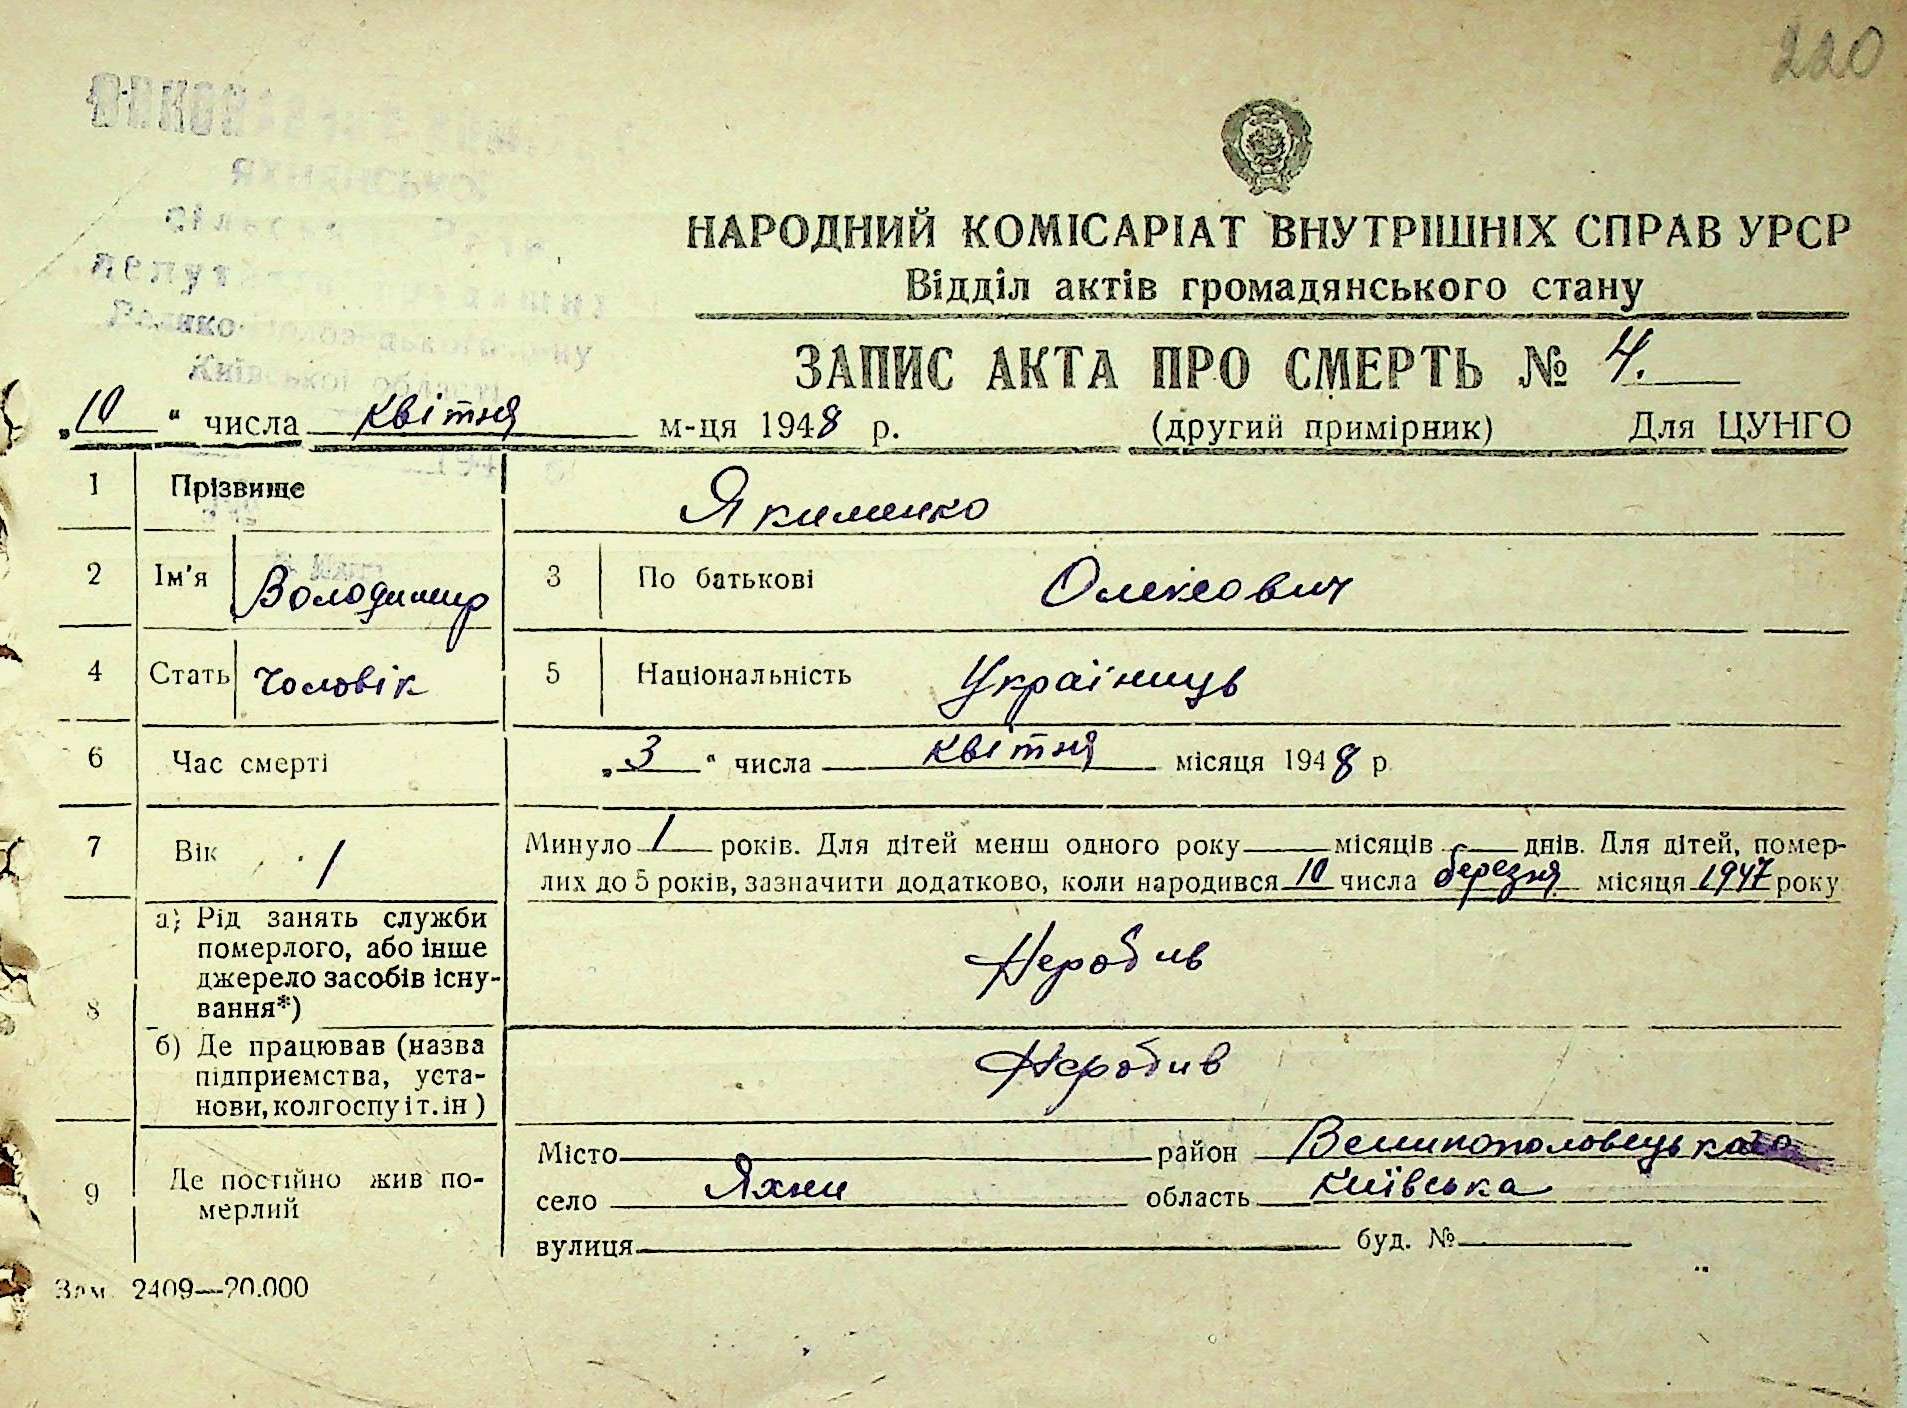 220
ЯХНЯНСЬКОЇ
Київської області
НАРОДНИЙ КОМІСАРІАТ ВНУТРІШНІХ СПРАВ УРСР
Відділ актів громадянського стану
ЗАПИС АКТА ПРО СМЕРТЬ № 4.
„10" числа квітня м-ця 1948 р. (другий примірник) Для ЦУНГО
1 Прізвище Якименко
2 Ім'я Володимир 3 По батькові Олексович
4 Стать Чоловік 5 Національність Україниць
6 Час смерті „3" числа квітня місяця 1948 р
7 Вік 1 Минуло 1 років. Для дітей менш одного року — місяців — днів. Для дітей, помер-
лих до 5 років, зазначити додатково, коли народився 10 числа березня місяця 1947 року
8 а) Рід занять служби
померлого, або інше
джерело засобів існу-
вання*) Неробив
б) Де працював (назва
підприємства, уста-
нови, колгоспу і т. ін ) Неробив
9 Де постійно жив по-
мерлий
Місто район Великополовецького
село Яхни область Київська
вулиця буд. №
Зам. 2409—20.000